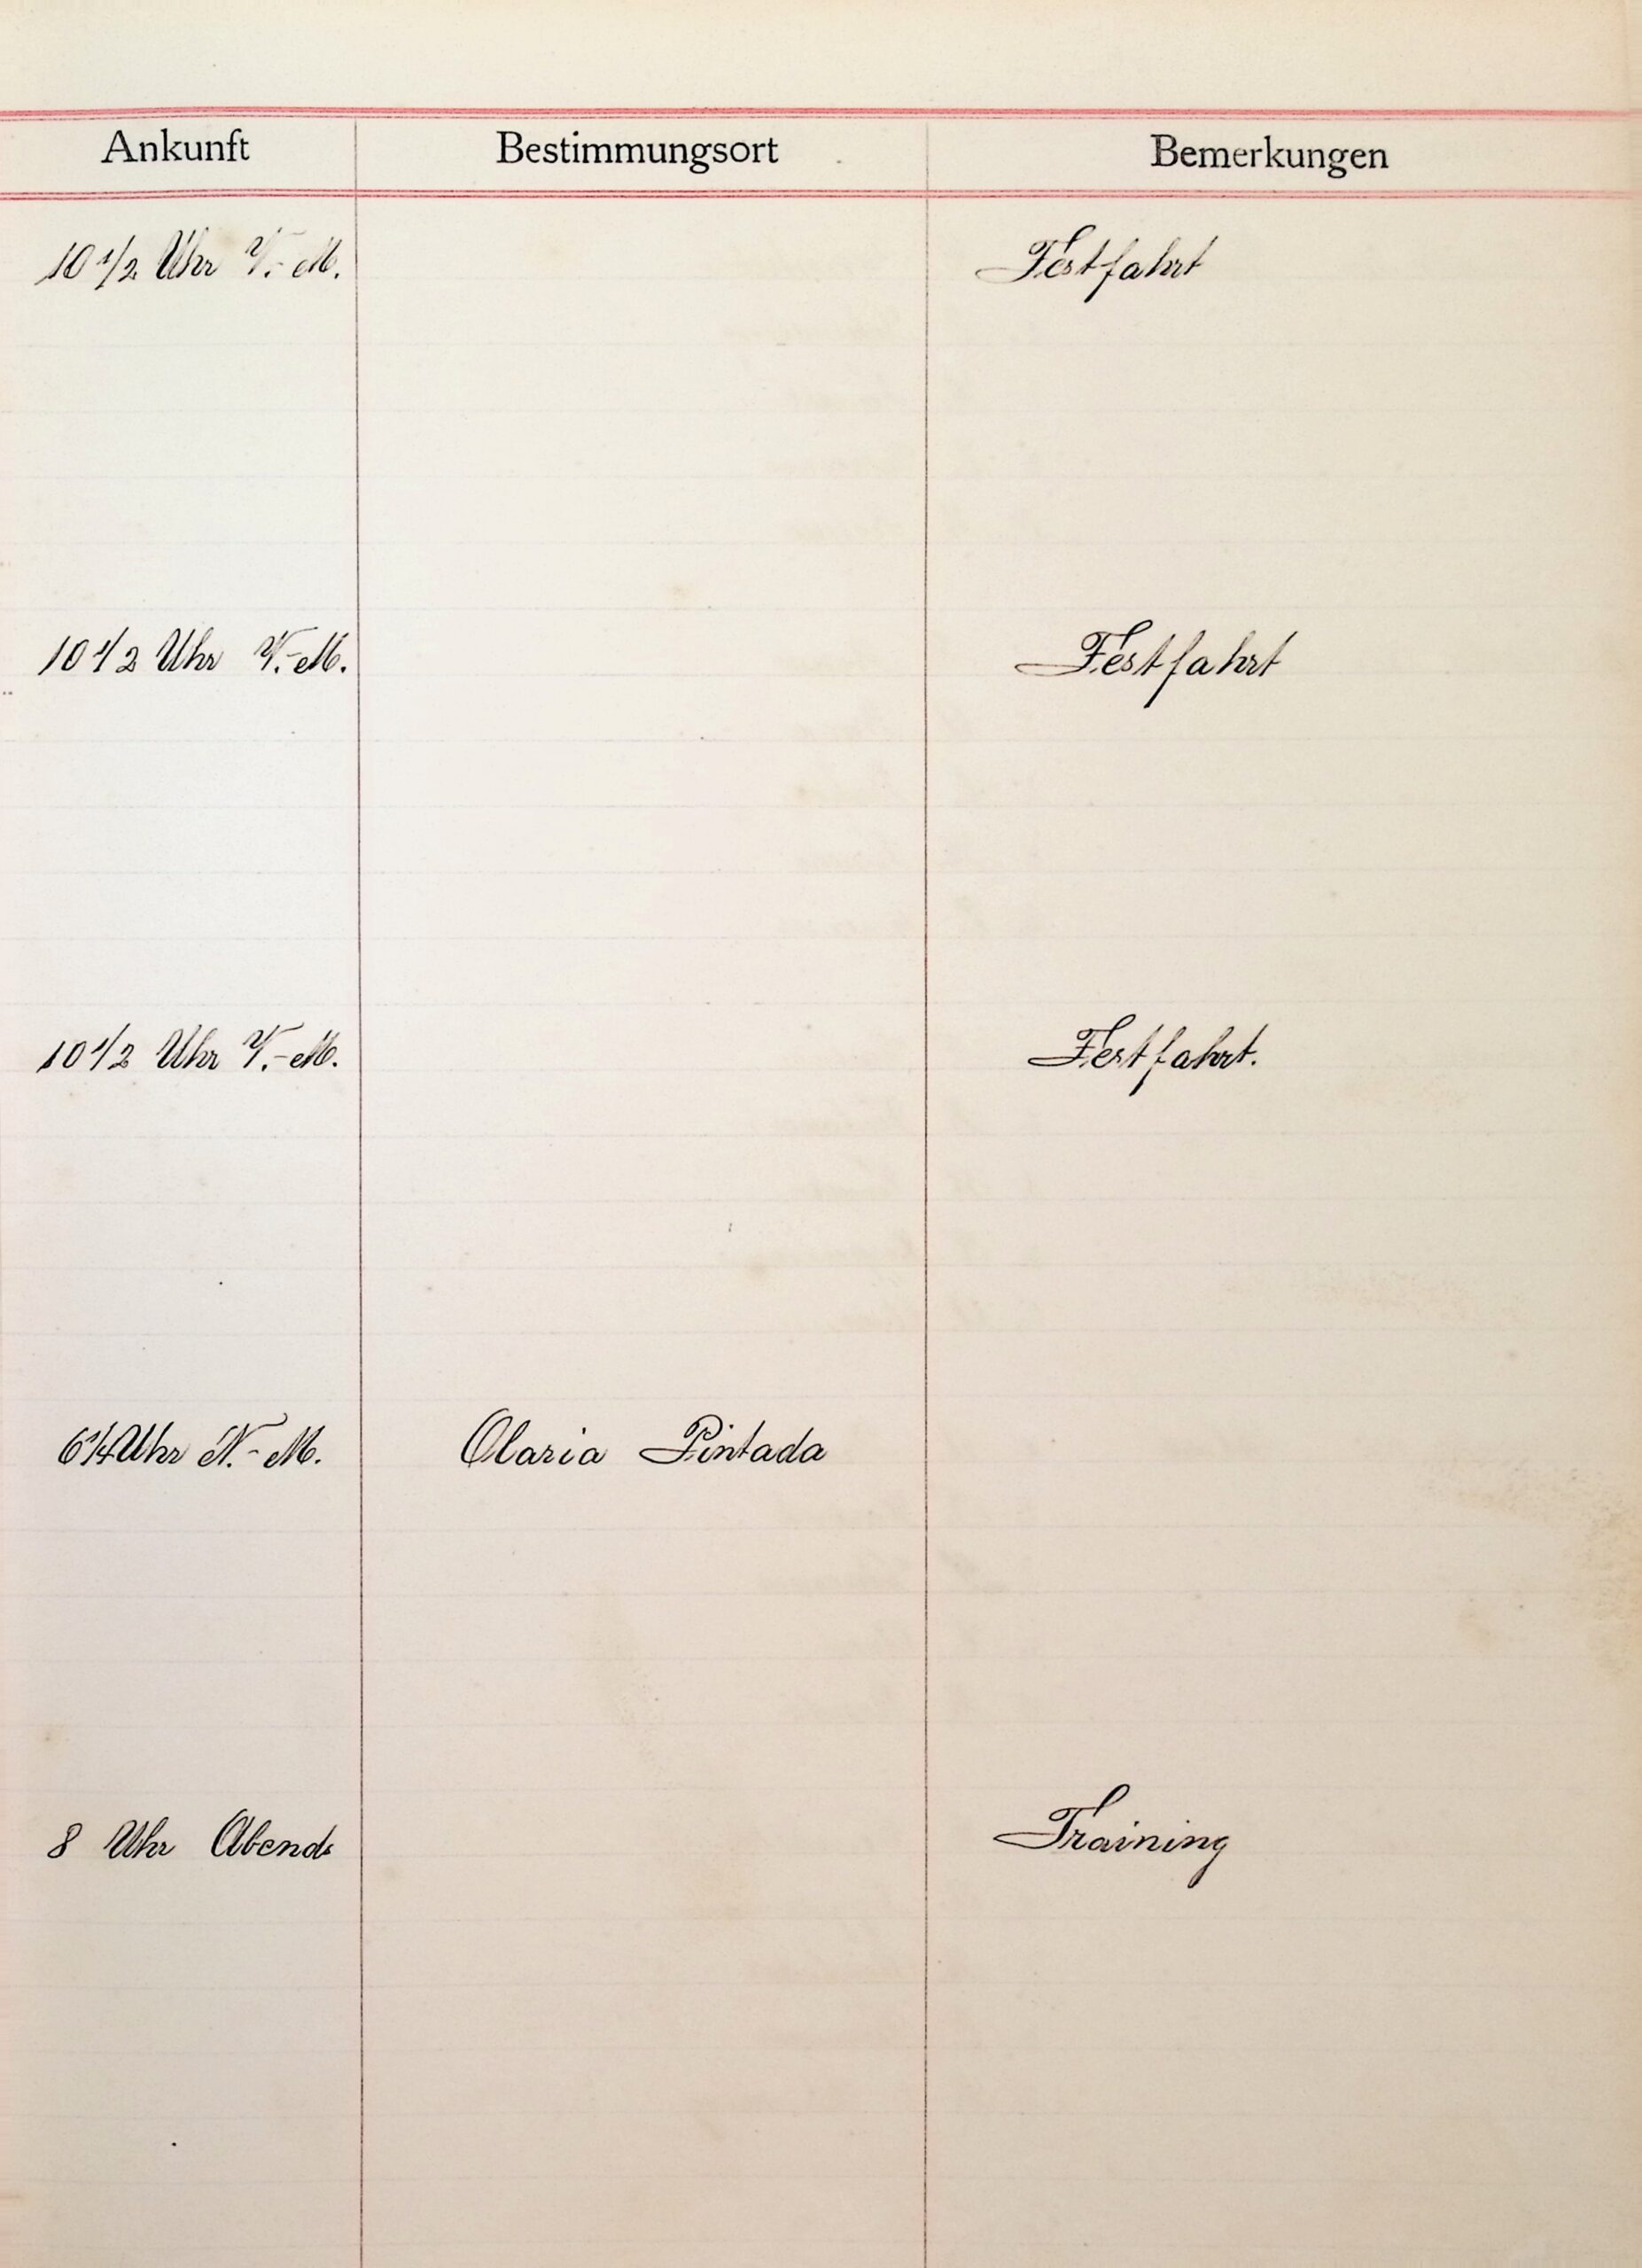 Ankunft Bestimmungsort Bemerkungen
10 1/2 Uhr V.-M. Festfahrt
10 1/2 Uhr V.-M. Festfahrt
10 1/2 Uhr V.-M. Festfahrt.
6 1/4 Uhr N.-M. Olaria Pintada
8 Uhr Abends Training